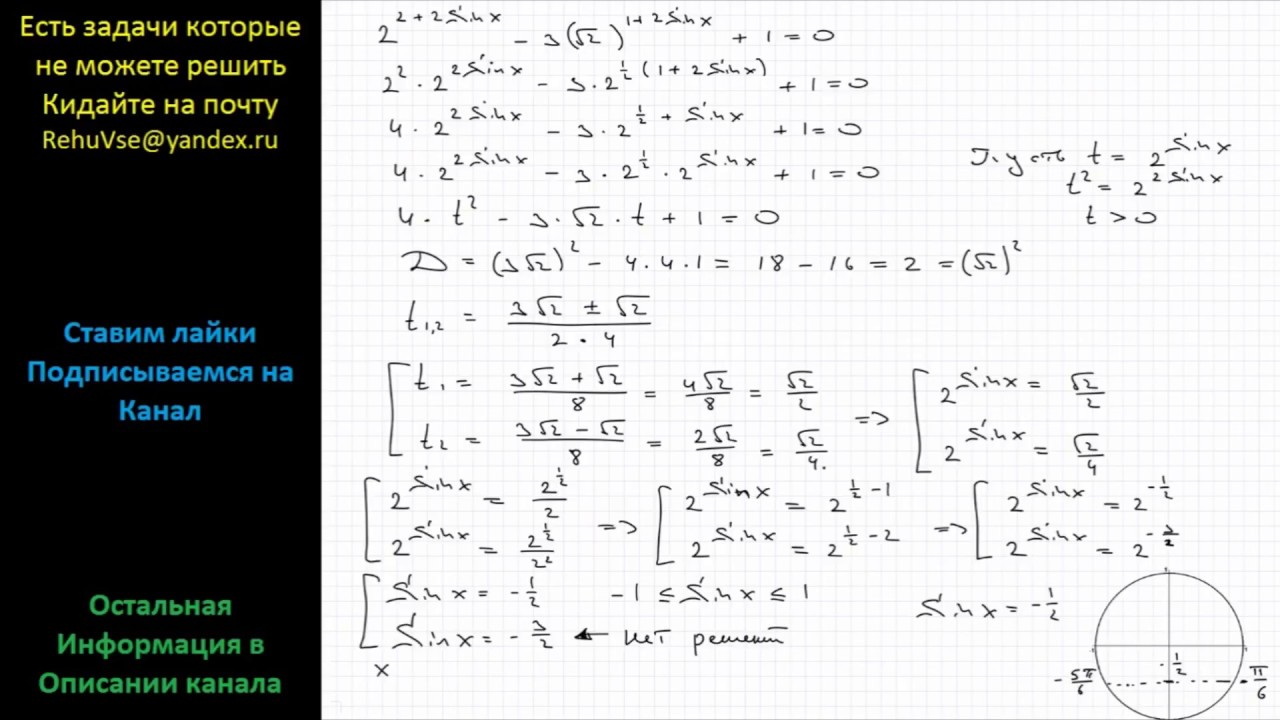 Есть задачи которые
не можете решить
Кидайте на почту
RehuVse@yandex.ru
Ставим лайки
Подписываемся на
Канал
Остальная
Информация в
Описании канала
2^{2+2Sin x} - 3(√2)^{1+2Sin x} + 1 = 0
2^2 · 2^{2Sin x} - 3·2^{1/2(1+2Sin x)} + 1 = 0
4 · 2^{2Sin x} - 3·2^{1/2 + Sin x} + 1 = 0
4 · 2^{2Sin x} - 3·2^{1/2} · 2^{Sin x} + 1 = 0
Пусть t = 2^{Sin x}
t^2 = 2^{2Sin x}
t > 0
4 · t^2 - 3·√2 · t + 1 = 0
D = (3√2)^2 - 4·4·1 = 18 - 16 = 2 = (√2)^2
t_{1,2} = (3√2 ± √2)/(2 · 4)
[ t_1 = (3√2 + √2)/8 = 4√2/8 = √2/2 => [ 2^{Sin x} = √2/2
t_2 = (3√2 - √2)/8 = 2√2/8 = √2/4. 2^{Sin x} = √2/4
[ 2^{Sin x} = 2^{1/2}/2 => [ 2^{Sin x} = 2^{1/2 - 1} => [ 2^{Sin x} = 2^{-1/2}
2^{Sin x} = 2^{1/2}/2^2 2^{Sin x} = 2^{1/2 - 2} 2^{Sin x} = 2^{-3/2}
[ Sin x = -1/2 -1 ≤ Sin x ≤ 1 Sin x = -1/2
Sin x = -3/2 ← нет решений
x
-1/2
-5π/6
-π/6